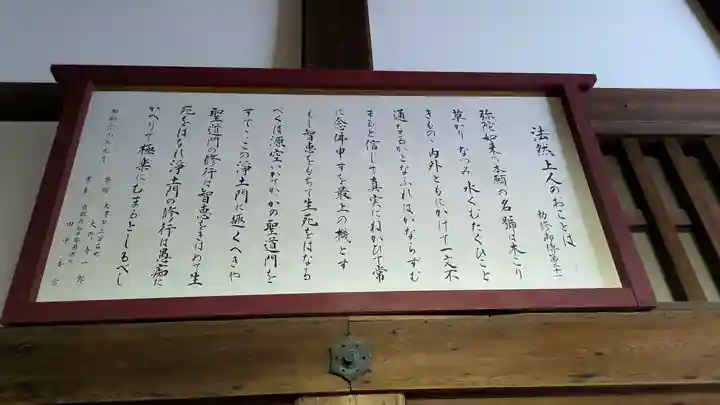 法然上人のおことは
勅修御傳第廿一
弥陀如来の本願の名號は木こり
草かりなつみ水くむたくひこと
きものゝ内外ともにかけて一文不
通なるかとなふれはかならずむ
まると信して真実にねかひて常
に念佛申すを最上の機とす
もし智恵をもちて生死をはなる
べくは源空いかてかかの聖道門を
すてゝこの浄土門に趣くへきや
聖道門の修行は智恵をきはめて生
死をはなれ浄土門の修行は愚痴に
かへりて極楽にむまるとしるべし